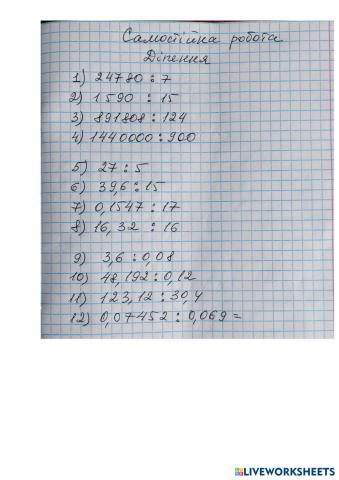 Самостійна робота
Ділення
1) 24780 : 7
2) 1590 : 15
3) 891808 : 124
4) 1440000 : 900
5) 27 : 5
6) 39,6 : 15
7) 0,1547 : 17
8) 16,32 : 16
9) 3,6 : 0,08
10) 48,192 : 0,12
11) 123,12 : 30,4
12) 0,07452 : 0,069 =
LIVEWORKSHEETS